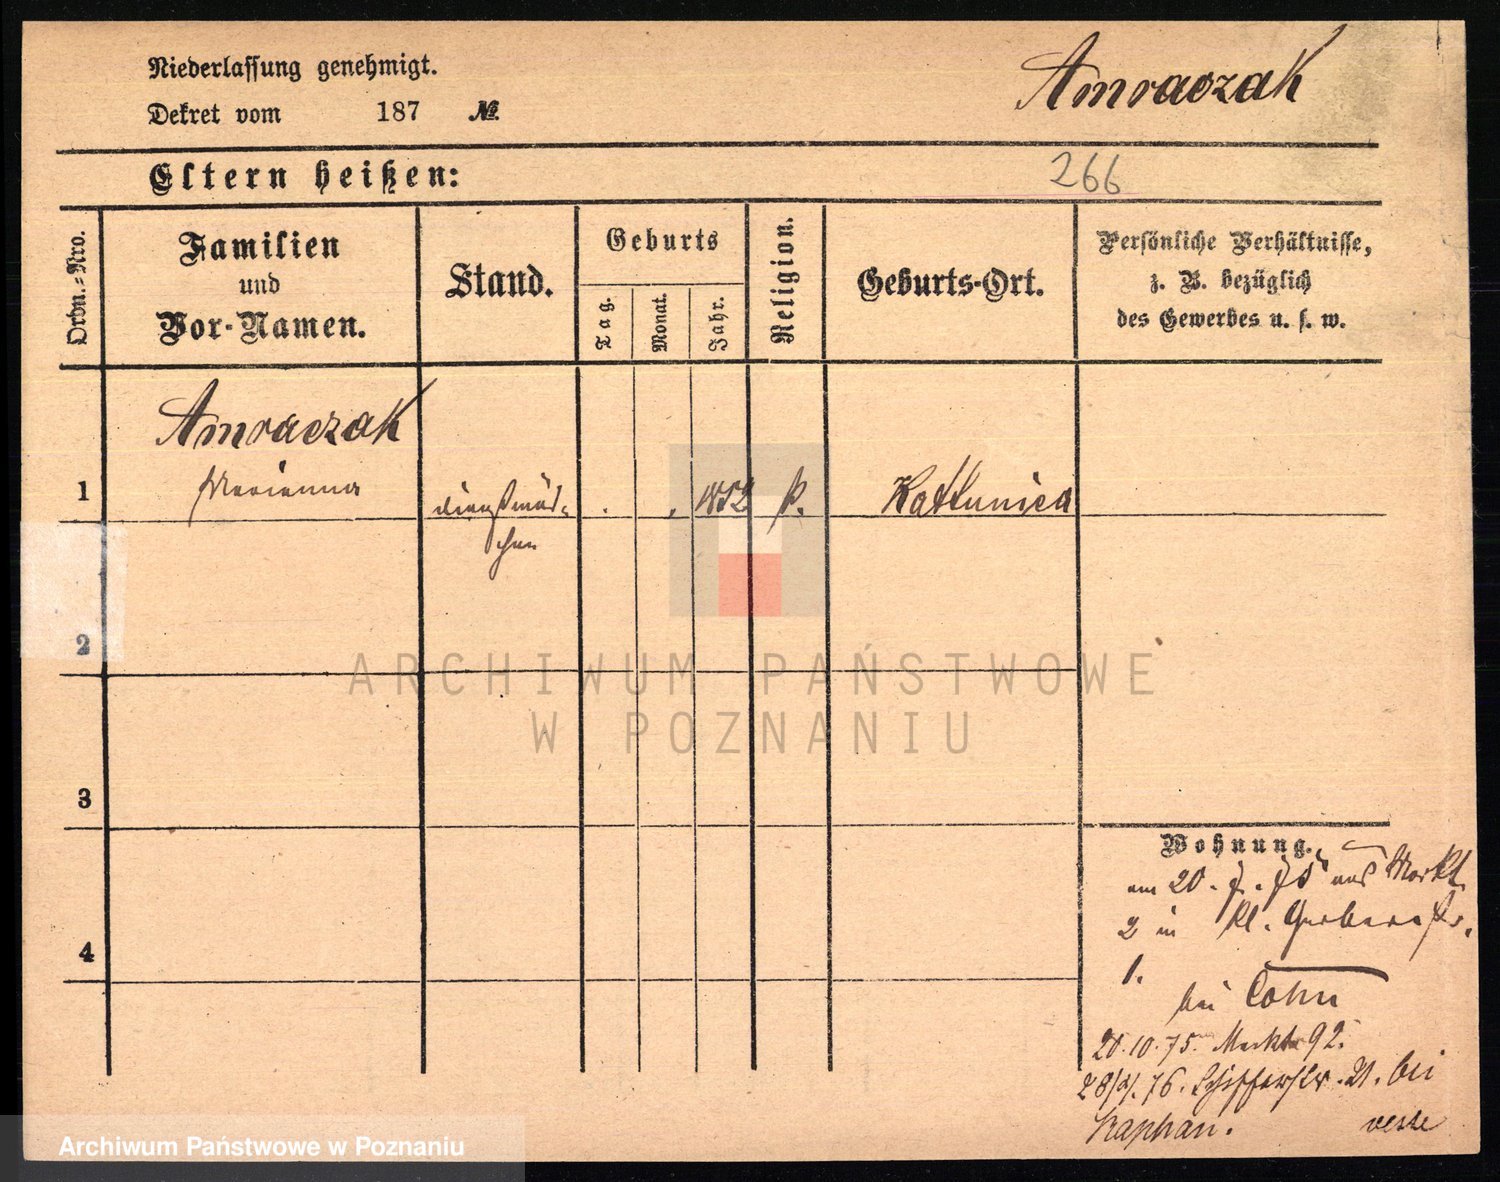 Niederlassung genehmigt.
Dekret vom 187 №.
Amraczak
Eltern heißen:
266
Ordn.-Nro.
Familien
und
Vor-Namen.
Stand.
Geburts
Tag.
Monat.
Jahr.
Religion.
Geburts-Ort.
Persönliche Verhältnisse,
z. B. bezüglich
des Gewerbes u. s. w.
Amraczak
1 Marianna
dienstmäd-
chen
1852
k.
2
3
4
Wohnung.
am 20. 7. 75 aus Markt
2 in kl. Gerberstr.
1.
bei Cohn
20.10.75. Markt 92.
76. Schifferstr. 21. bei
Kaphan.
ARCHIWUM PAŃSTWOWE
W POZNANIU
Archiwum Państwowe w Poznaniu